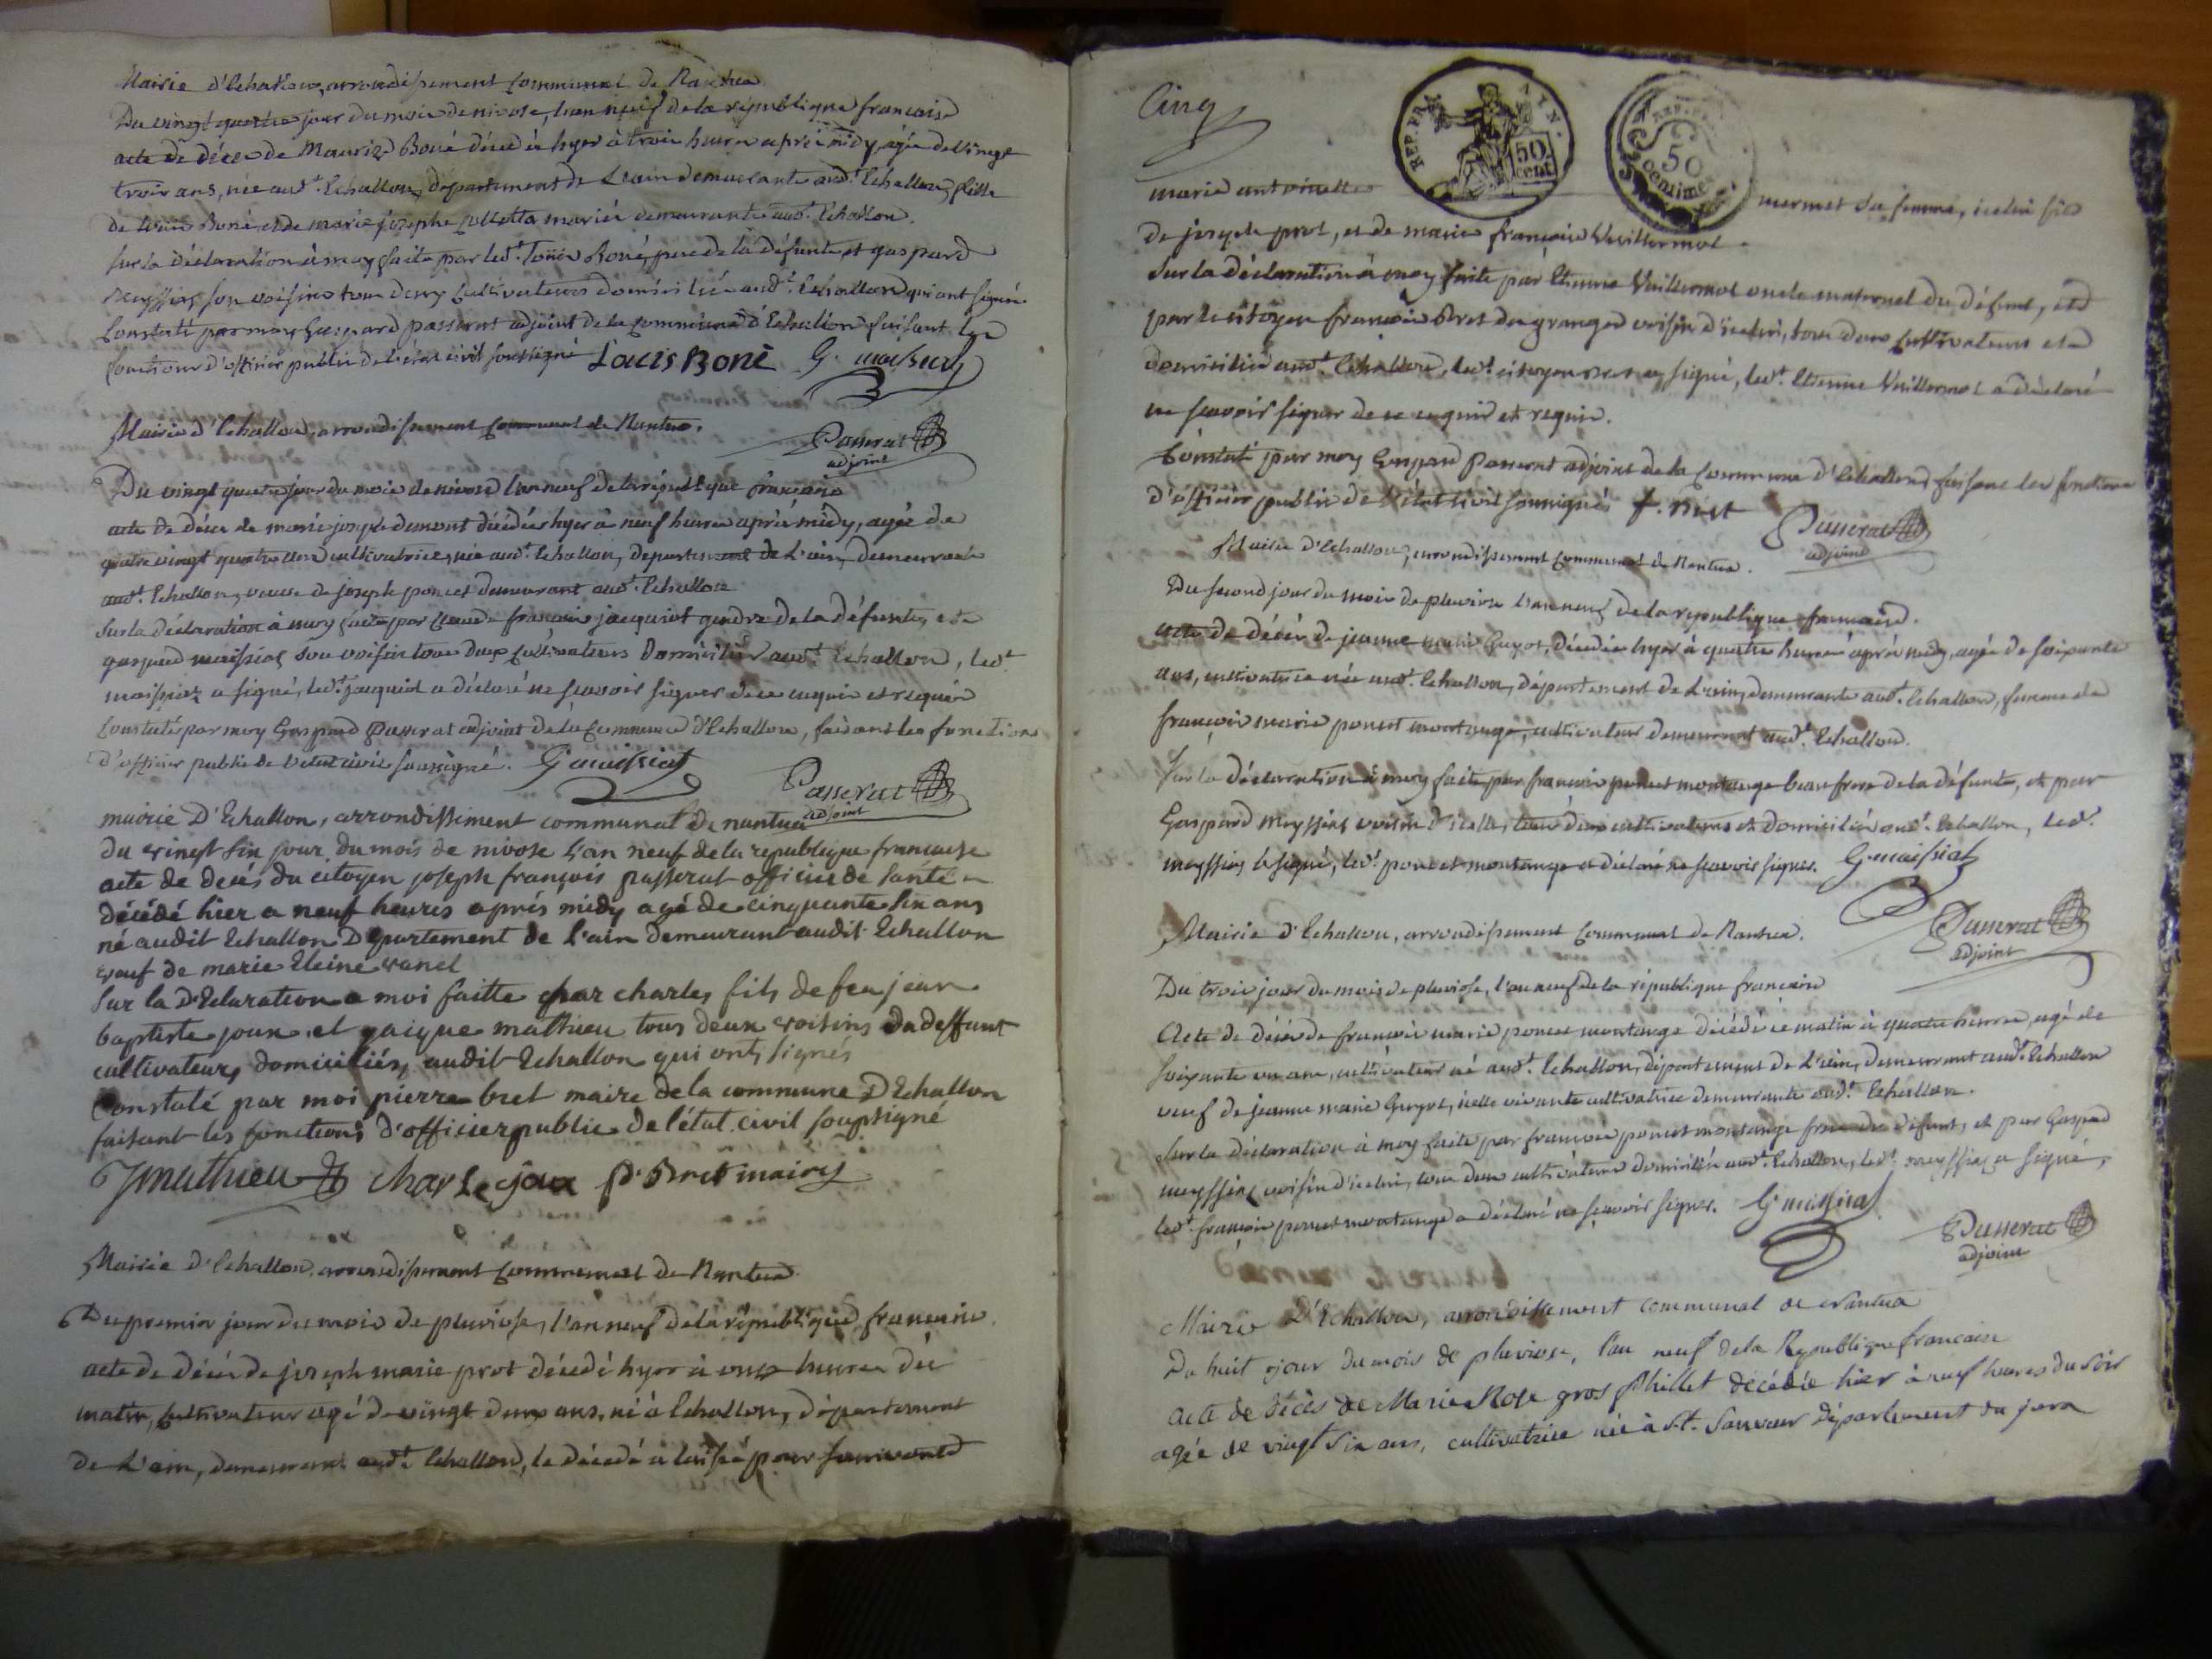 Mairie d'Echallon, arrondissement communal de Nantua
Du vingt quatre jour du mois de nivose, l'an neuf de la république française
acte de décès de Boné décédée hyer à trois heures après midy, agée de vingt
trois ans, née audt. Echallon, département de L'ain demeurante audt. Echallon, fille
de Louis Boné, et de marie josephe mariés demeurants audt. Echallon.
Sur la déclaration à moy faite par ledt. Louis Boné, pere de la défunte et gaspard
son voisin tous deux cultivateurs domiciliés audt. Echallon qui ont signé.
Constaté par moy Gaspard passerat adjoint de la commune d'Echallon faisant les
fonctions d'officier public de l'état civil soussigné Louis Boné G. maissiat
Mairie d'Echallon, arrondissement communal de Nantua.
Passerat
adjoint
Du vingt quatre jour du mois de nivose l'an neuf de la république française
acte de décès de marie josephe dumont décédée hyer à neuf heures après midy, agée de
quatre vingt quatre ans cultivatrice, née audt. Echallon, département de L'ain, demeurante
audt. Echallon, veuve de joseph poncet demeurant audt. Echallon
Sur la déclaration à moy faite par Claude françois jacquiot gendre de la défunte, et de
gaspard maissiat son voisin tous deux cultivateurs domiciliés audt. Echallon, ledt
maissiat a signé, ledt. jacquiot a déclaré ne scavoir signer de ce enquis et requis
Constaté par moy Gaspard Passerat adjoint de la commune d'Echallon, faisant les fonctions
d'officier public de l'etat civil soussigné. G maissiat
Passerat
adjoint
mairie D'Echallon, arrondissiment communal de nantua
du vingt six jour du mois de nivose l'an neuf de la republique française
acte de decés du citoyen joseph françois passerat officier de santé
décédé hier a neuf heures aprés midy agé de cinquante six ans
né audit Echallon Département de l'ain demeurant audit Echallon
veuf de marie Eleine vanel
sur la D'Eclaration a moi faitte par charles fils de feu jean
baptiste joux et jaique mathieu tous deux voisins du deffunt
cultivateurs domiciliés audit Echallon qui ont signés
Constaté par moi pierre bret maire de la commune D'Echallon
faisant les fonctions d'officier public de l'état civil soussigné
J mathieu charle joux P. Bret maire
Mairie d'Echallon, arrondissement communal de Nantua.
Du premier jour du mois de pluviose, l'an neuf de la république française.
acte de décès de joseph marie prot décédé hyer à onze heures du
matin, cultivateur agé de vingt deux ans, né à Echallon, département
de L'ain, demeurant audt. Echallon, le décédé a laissé pour survivante
Cinq
REP. FRA
50 cent.
REP. FRA
50 centimes
marie antoinette mermet sa femme, icelui fils
de joseph prot, et de marie françoise Vuillermoz.
Sur la déclaration à moy faite par Etienne Vuillermoz oncle maternel du défunt, et
par le citoyen françois Bret des granges voisin d'icelui, tous deux cultivateurs et
domiciliés audt. Echallon, ledt. citoyen Bret a signé, ledt. Etienne Vuillermoz a déclaré
ne scavoir signer de ce enquis et requis.
Constaté par moy Gaspard Passerat adjoint de la commune d'Echallon, faisant les fonctions
d'officier public de l'état civil soussigné f. Bret
Passerat
adjoint
Mairie d'Echallon, arrondissement communal de Nantua.
Du second jour du mois de pluviose l'an neuf de la republique française.
acte de décès de jeanne marie Guyot, décédée hyer à quatre heures après midy, agée de soixante
ans, cultivatrice née audt. Echallon, département de L'ain, demeurante audt. Echallon, femme de
françois marie poncet montange, cultivateur demeurant audt. Echallon.
Sur la déclaration à moy faite par françois poncet montange beau frere de la défunte, et par
Gaspard meyssiat voisin d'icelle, tous deux cultivateurs et domiciliés audt. Echallon, ledt.
meyssiat a signé, ledt. poncet montange a déclaré ne scavoir signer. G. maissiat
Passerat
adjoint
Mairie d'Echallon, arrondissement communal de Nantua.
Du trois jour du mois de pluviose, l'an neuf de la république française
Acte de décès de françois marie poncet montange décédé ce matin à quatre heures, agé de
soixante un ans, cultivateur né audt. Echallon, département de L'ain, demeurant audt. Echallon
veuf de jeanne marie Guyot, icelle vivante cultivatrice demeurante audt. Echallon.
Sur la déclaration à moy faite par françois poncet montange frere du défunt, et par Gaspard
meyssiat voisin d'icelui, tous deux cultivateurs domiciliés audt. Echallon, ledt. meyssiat a signé,
ledt. françois poncet montange a déclaré ne scavoir signer. G maissiat
Passerat
adjoint
Mairie D'Echallon, arrondissement communal de Nantua
Du huit jour du mois de pluviose, l'an neuf de la Republique francaise
acte de décès de Marie Rose gros Phillet décédée hier à neuf heures du soir
agée de vingt six ans, cultivatrice née à St. Sauveur Département du jura